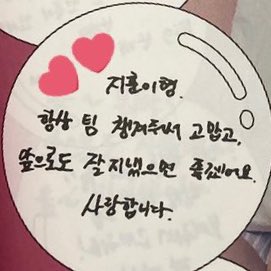 지훈이형.
항상 팀 챙겨주셔서 고맙고,
앞으로도 잘 지냈으면 좋겠어요.
사랑합니다.